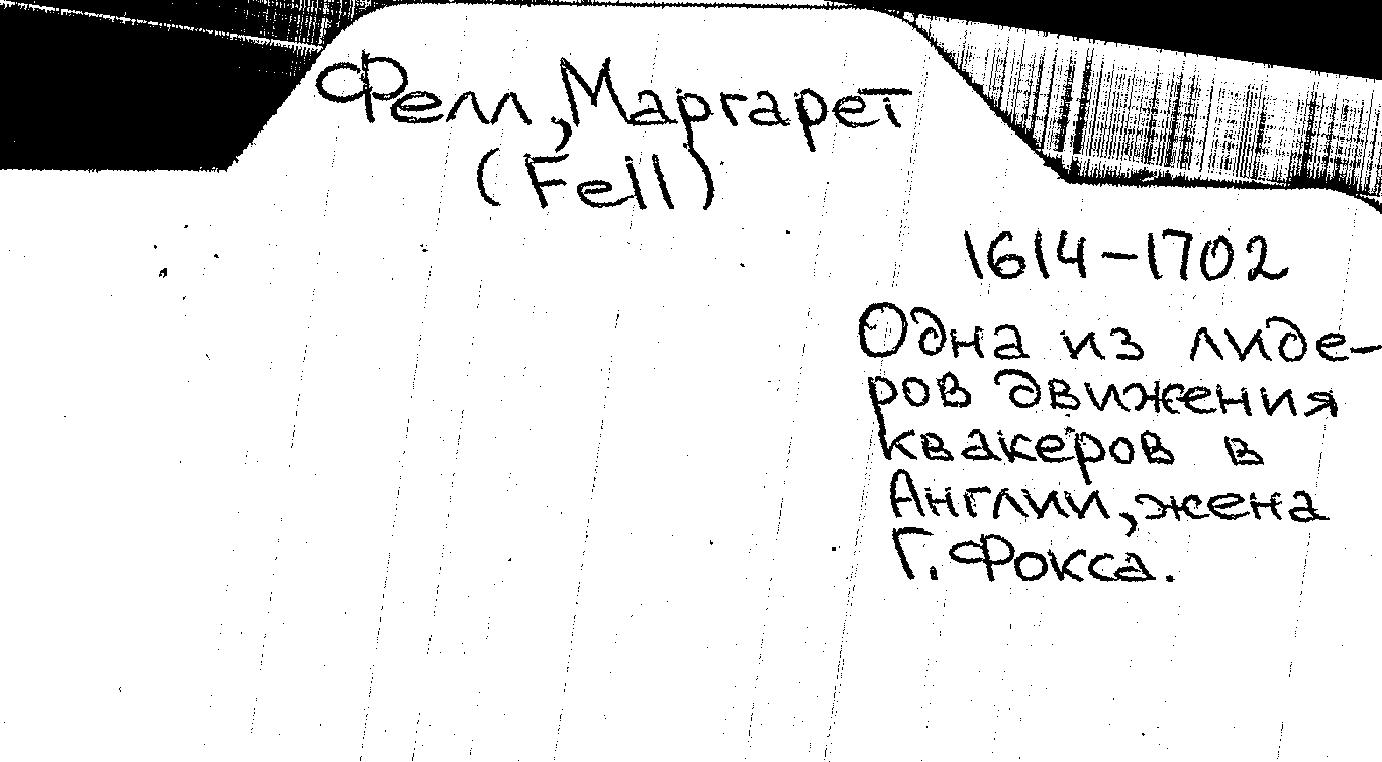 Фелл, Маргарет
(Fell)
1614-1702
Одна из лиде-
ров движения
квакеров в
Англии, жена
Г. Фокса.